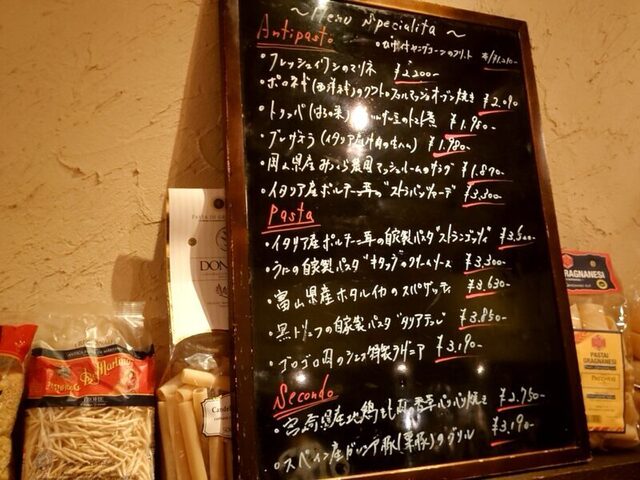 ~Menu Specialita~
Antipasto
・ひげ付ヤングコーンのフリット 本/¥1,210-
・フレッシュイワシのマリネ ¥2,200-
・ポロネギ(西洋ネギ)の オーブン焼き ¥2,090
・トリッパ(はちの巣) のトマト煮 ¥1,980-
・ブレザオラ(イタリア産牛肉の生ハム) ¥1,980-
・岡山県産 農園マッシュルームの ¥1,870-
・イタリア産ポルチーニ茸の ¥3,300-
Pasta
・イタリア産ポルチーニ茸の自家製パスタ"ストランゴッツィ" ¥3,500-
・うにの自家製パスタ"キタッラ"のクリームソース ¥3,300-
・富山県産ホタルイカのスパゲッティ ¥3,630-
・黒トリュフの自家製パスタ"タリアテッレ" ¥3,850-
・ゴロゴロ肉のシェフ特製ラザニア ¥3,190-
Secondo
・宮崎県産地鶏もも肉の香草パン粉焼き ¥2,750-
・スペイン産 豚(栗豚)のグリル ¥3,190-
DON
TROFIE
GRAGNANESI
PASTAI
GRAGNANESI